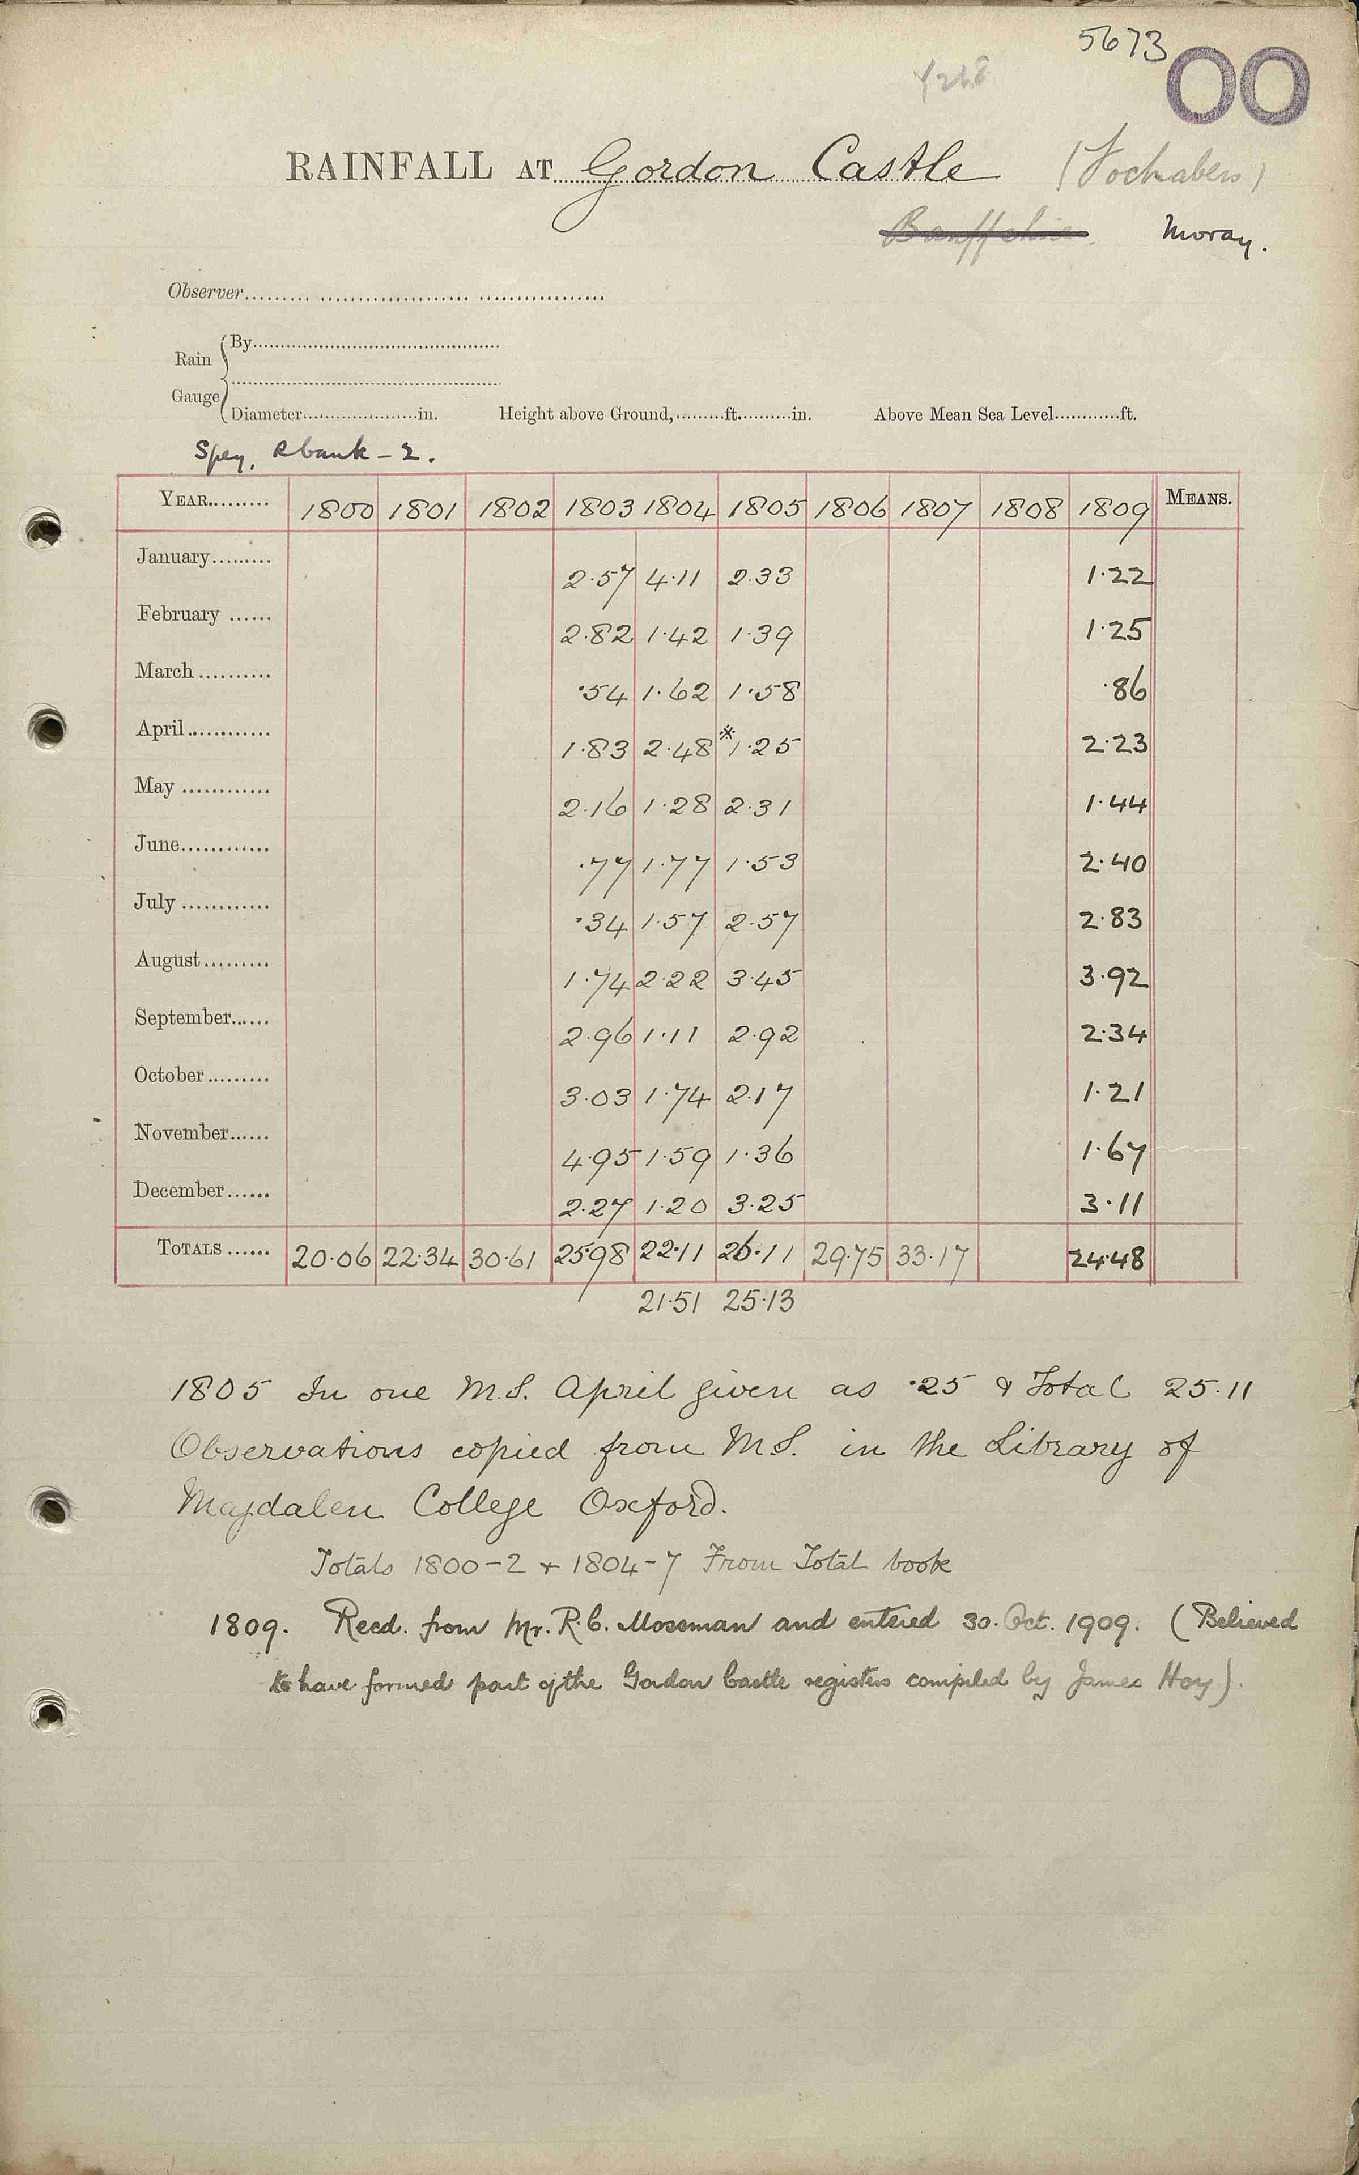 5673
OO
RAINFALL AT Gordon Castle (Fochabers)
Banffshire. Moray.
Observer
Rain Gauge
By
Diameter in. Height above Ground, ft. in. Above Mean Sea Level ft.
Spey, R bank - 2.
YEAR 1800 1801 1802 1803 1804 1805 1806 1807 1808 1809 MEANS.
January 2.57 4.11 2.33 1.22
February 2.82 1.42 1.39 1.25
March .54 1.62 1.58 .86
April 1.83 2.48 *1.25 2.23
May 2.16 1.28 2.31 1.44
June .77 1.77 1.53 2.40
July .34 1.57 2.57 2.83
August 1.74 2.22 3.45 3.92
September 2.96 1.11 2.92 2.34
October 3.03 1.74 2.17 1.21
November 4.95 1.59 1.36 1.67
December 2.27 1.20 3.25 3.11
TOTALS 20.06 22.34 30.61 25.98 22.11 26.11 29.75 33.17 24.48
21.51 25.13
1805 In one M.S. April given as .25 & Total 25.11
Observations copied from M.S. in the Library of
Magdalen College Oxford.
Totals 1800-2 + 1804-7 From Total book
1809. Recd. from Mr. R.C. Mossman and entered 30. Oct. 1909. (Believed
to have formed part of the Gordon Castle registers compiled by James Hoy).